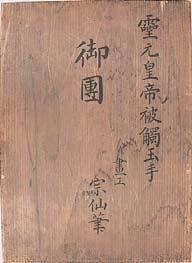 靈元皇帝被觸玉手
御團
畫工
宗仙筆